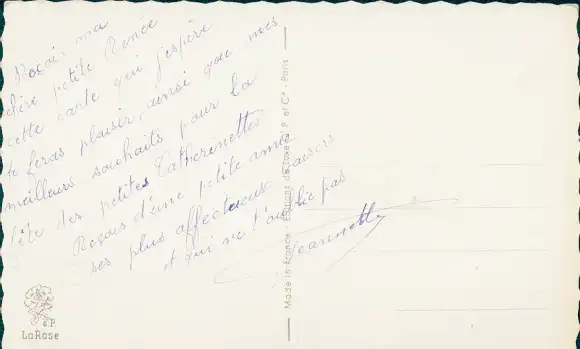 Reçois ma
chère petite Renée
cette carte qui j'espère
te feras plaisir, ainsi que mes
meilleurs souhaits pour la
fête des petites Catherinettes
Reçois d'une petite amie
ses plus affectueux baisers
et qui ne t'oublie pas
Jeannette
Made in France - Editions du P et Cie - Paris
G.P
LaRose